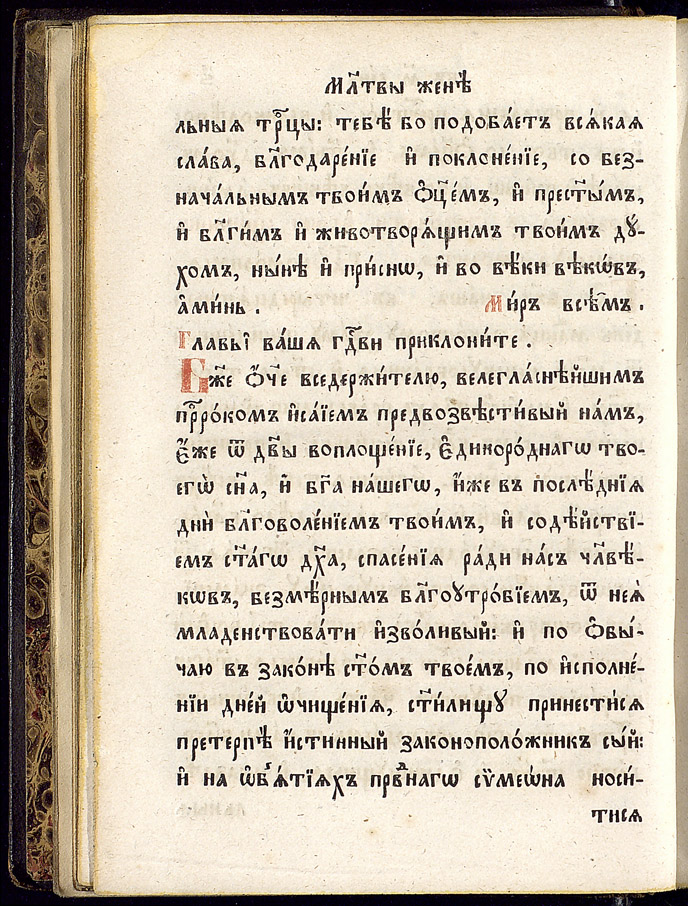 Мл҃твы женѣ̀
льныѧ трⷪ҇цы: тебѣ́ бо подоба́етъ всѧ́каѧ
сла́ва, бл҃годаре́нїе и҆ поклоне́нїе, со без-
нача́льнымъ твои́мъ ѻ҆ц҃е́мъ, и҆ прест҃ы́мъ,
и҆ бл҃ги́мъ и҆ животворѧ́щимъ твои́мъ дꙋ́-
хомъ, ны́нѣ и҆ при́снѡ, и҆ во вѣ́ки вѣкѡ́въ,
а҆ми́нь. Ми́ръ всѣ́мъ.
Главы̀ ва́шѧ гдⷭ҇ви приклони́те.
Бж҃е ѻ҆́ч҃е вседержи́телю, велегла́снѣйшимъ
прⷪ҇ро́комъ и҆са́їемъ предвозвѣсти́вый на́мъ,
є҆́же ѿ дв҃ы воплоще́нїе, є҆диноро́днагѡ тво-
егѡ̀ сн҃а, и҆ бг҃а на́шегѡ, и҆́же въ послѣ́днїѧ
дни̑ бл҃говоле́нїемъ твои́мъ, и҆ содѣ́йствї-
емъ ст҃а́гѡ дх҃а, спасе́нїѧ ра́ди на́съ чл҃вѣ́-
кѡвъ, безмѣ́рнымъ бл҃гоꙋтро́бїемъ, ѿ неѧ̀
младе́нствовати и҆зво́ливый: и҆ по ѻ҆бы́-
чаю въ зако́нѣ ст҃о́мъ твое́мъ, по и҆сполне́-
нїи дне́й ѡ҆чище́нїѧ, ст҃и́лищꙋ принести́сѧ
претерпѣ̀ и҆́стинный законополо́жникъ сы́й:
и҆ на ѡ҆б̾ѧ́тїѧхъ првⷣнагѡ сѷмеѡ́на носи́-
тисѧ